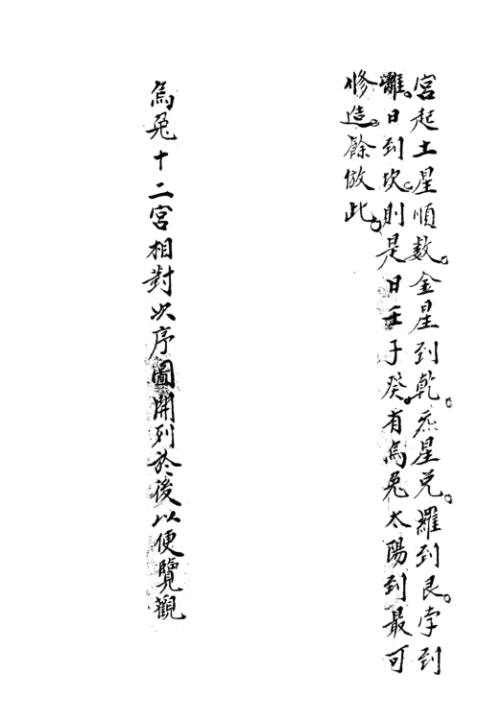 宮起土星順数。金星到乾。炁星兌。羅到艮。孛到
離。日到坎。則是日壬子癸有烏兔太陽到最可
修造。餘倣此。
烏兔十二宮相對次序圖開列於後以便覽觀